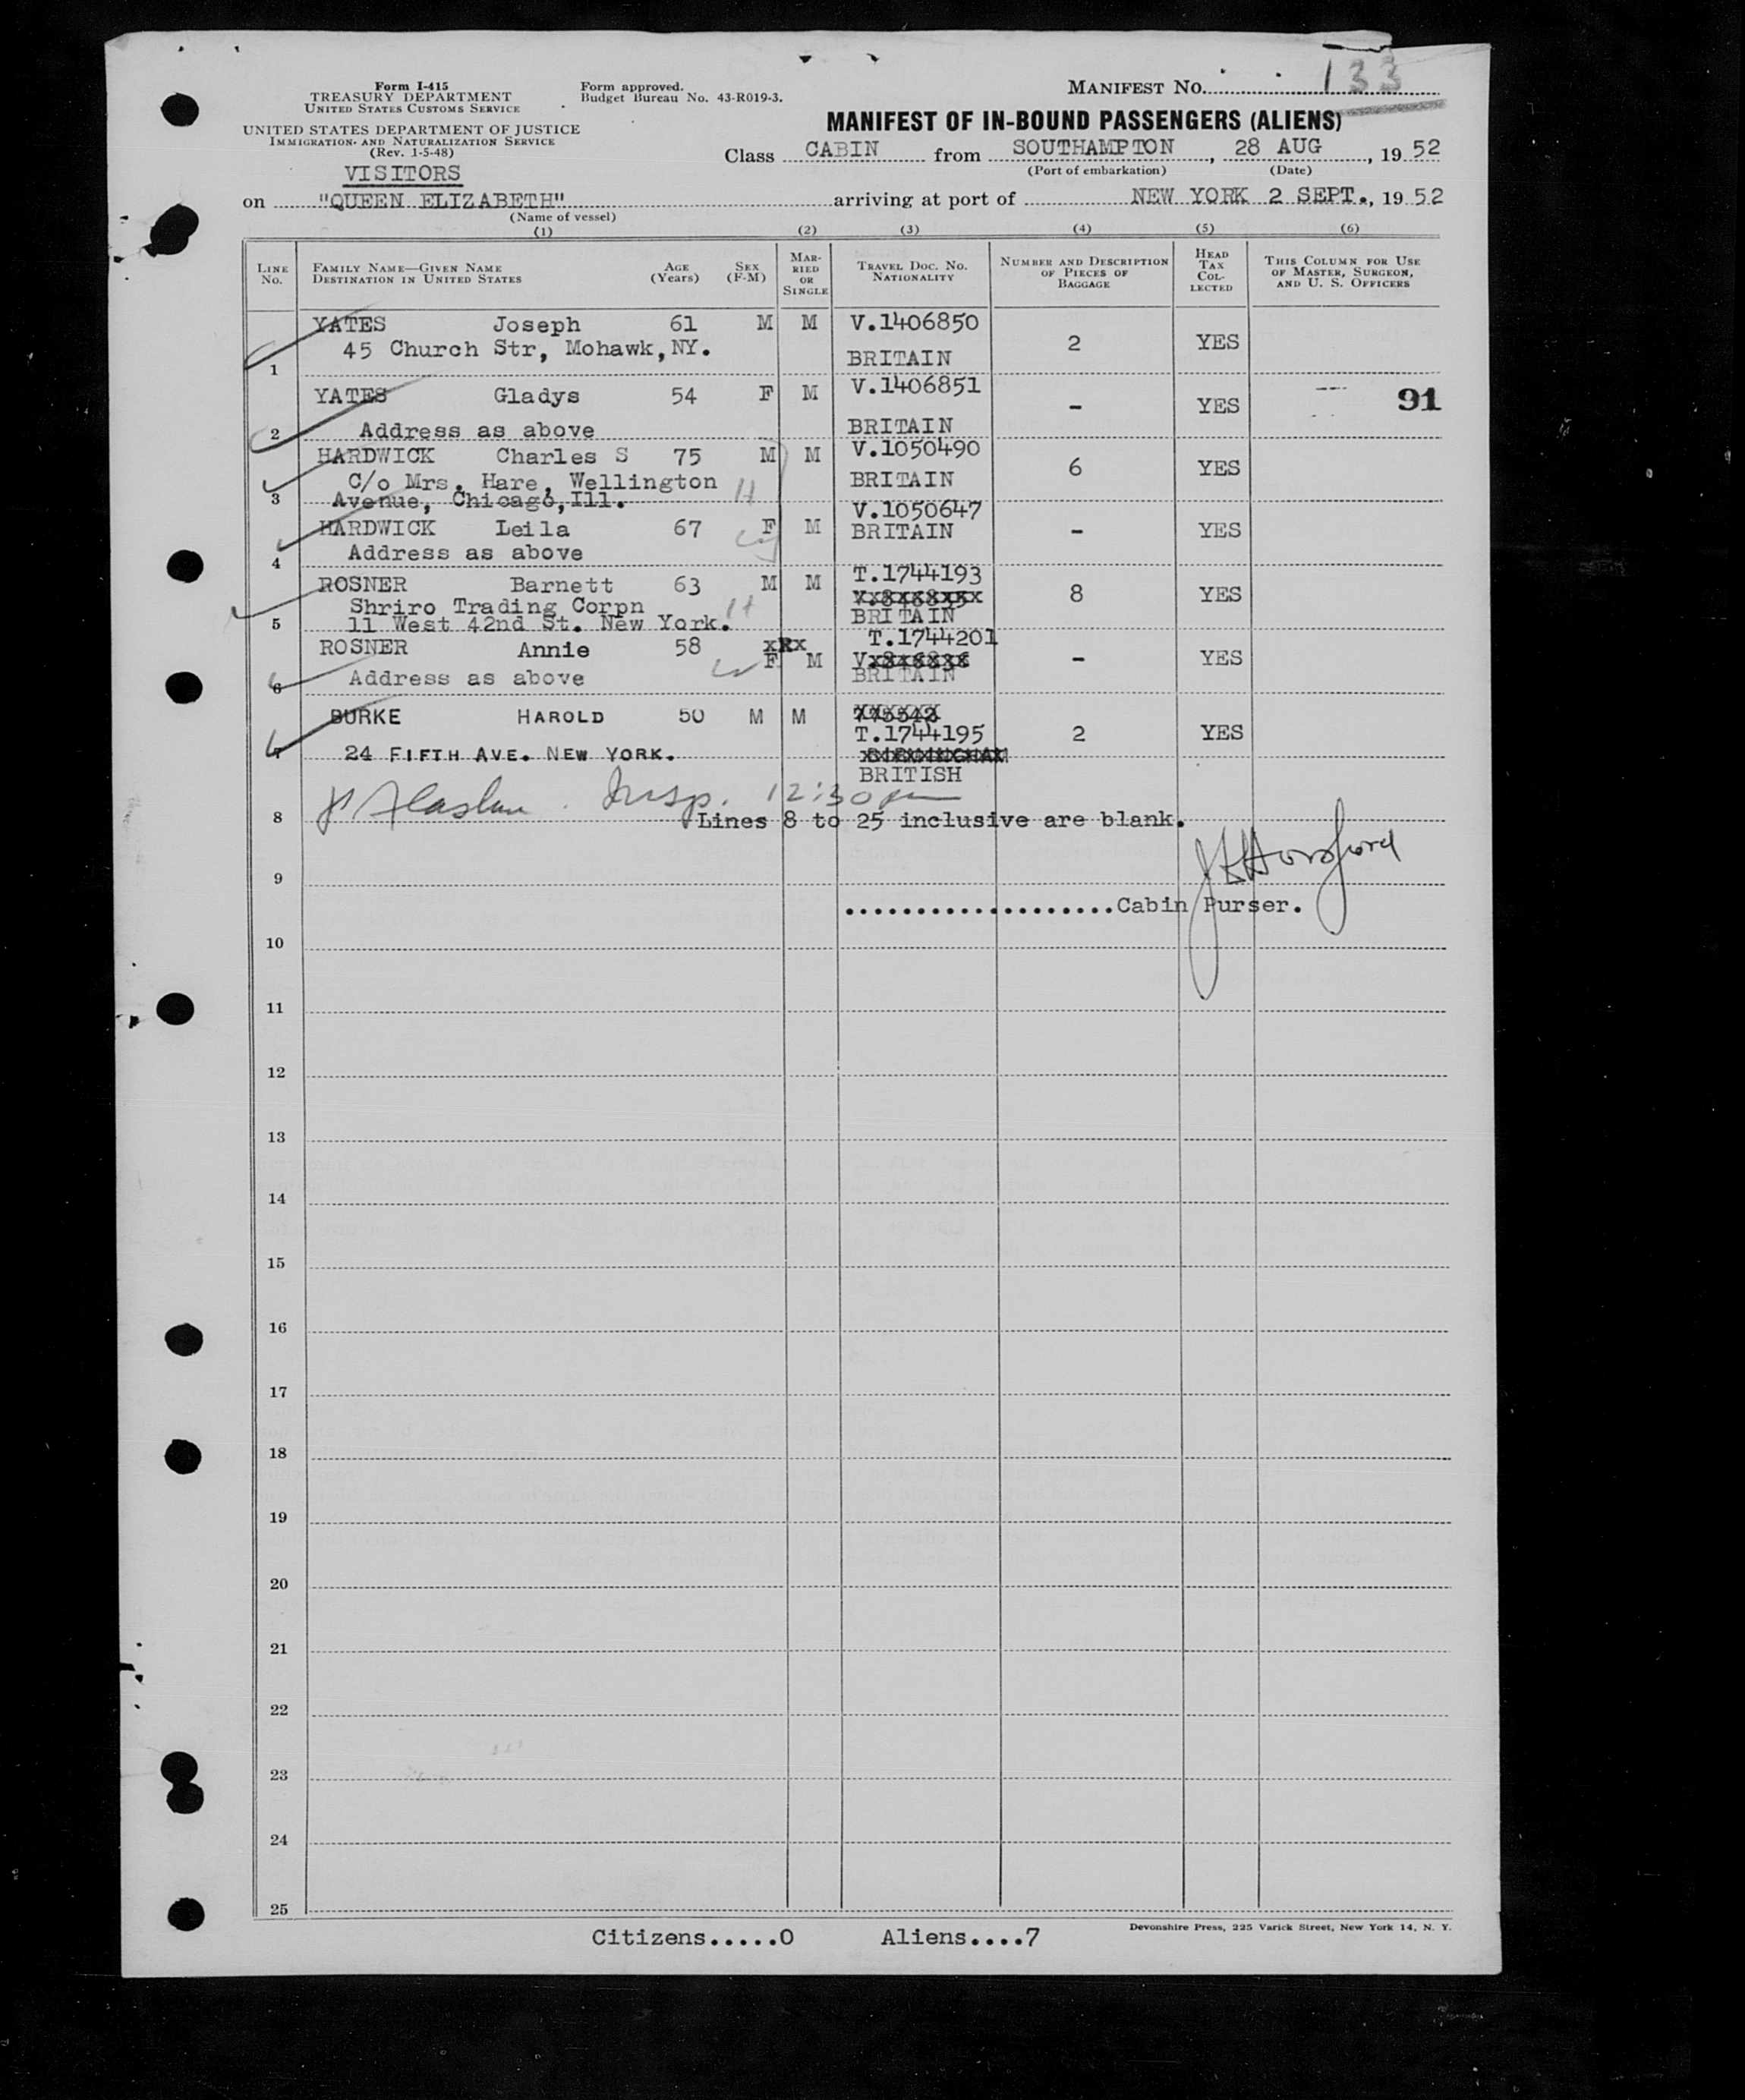 Form I-415
TREASURY DEPARTMENT
UNITED STATES CUSTOMS SERVICE
Form approved.
Budget Bureau No. 43-R019-3.
MANIFEST NO. 133
UNITED STATES DEPARTMENT OF JUSTICE
IMMIGRATION AND NATURALIZATION SERVICE
(Rev. 1-5-48)
MANIFEST OF IN-BOUND PASSENGERS (ALIENS)
VISITORS
Class CABIN from SOUTHAMPTON, 28 AUG, 1952
(Port of embarkation) (Date)
on "QUEEN ELIZABETH" arriving at port of NEW YORK 2 SEPT., 1952
(Name of vessel)
(1) (2) (3) (4) (5) (6)
LINE NO. FAMILY NAME—GIVEN NAME DESTINATION IN UNITED STATES AGE (Years) SEX (F-M) MARRIED OR SINGLE TRAVEL DOC. NO. NATIONALITY NUMBER AND DESCRIPTION OF PIECES OF BAGGAGE HEAD TAX COLLECTED THIS COLUMN FOR USE OF MASTER, SURGEON, AND U. S. OFFICERS
YATES Joseph 61 M M V.1406850
45 Church Str, Mohawk, NY. 2 YES
1 BRITAIN
YATES Gladys 54 F M V.1406851
- YES 91
2 Address as above BRITAIN
HARDWICK Charles S 75 M M V.1050490
C/o Mrs. Hare, Wellington BRITAIN 6 YES
3 Avenue, Chicago, Ill. H
V.1050647
HARDWICK Leila 67 F M BRITAIN - YES
4 Address as above
ROSNER Barnett 63 M M T.1744193
Shriro Trading Corpn 8 YES
5 11 West 42nd St. New York. H BRITAIN
ROSNER Annie 58 F M T.1744201
- YES
6 Address as above BRITAIN
BURKE HAROLD 50 M M
T.1744195 2 YES
7 24 FIFTH AVE. NEW YORK.
BRITISH
Insp. 12:30 pm
8 Lines 8 to 25 inclusive are blank.
9
....................Cabin Purser.
10
11
12
13
14
15
16
17
18
19
20
21
22
23
24
25
Citizens.....0 Aliens....7
Devonshire Press, 225 Varick Street, New York 14, N. Y.